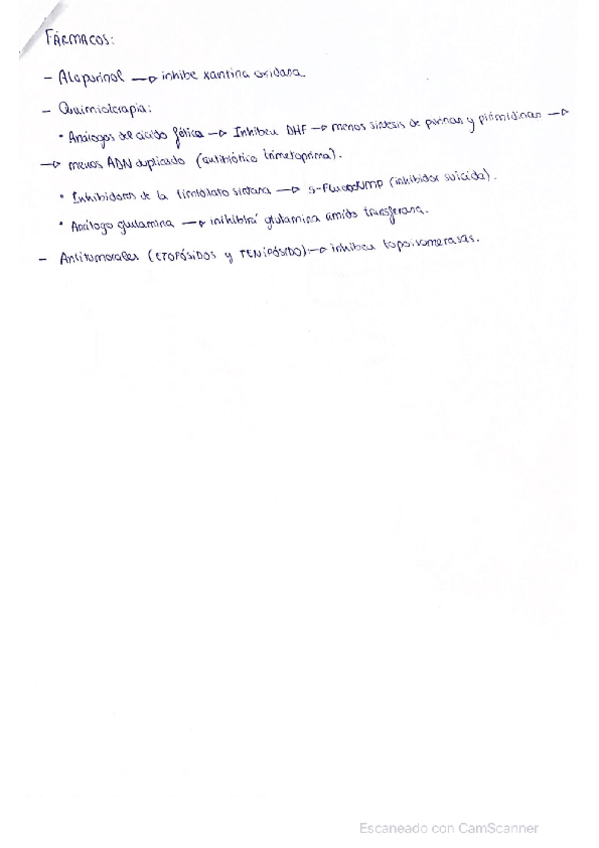 FÁRMACOS:
- Alopurinol → inhibe xantina oxidasa.
- Quimioterapia:
• Análogos del ácido fólico → Inhiben DHF → menos síntesis de purinas y pirimidinas →
→ menos ADN duplicado (antibiótico trimetoprima).
• Inhibidores de la timidilato sintasa → 5-FluorodUMP (inhibidor suicida).
• Análogo glutamina → inhibirá glutamina amido transferasa.
- Antitumorales (ETOPÓSIDOS y TENIPÓSIDO): → inhiben topoisomerasas.
Escaneado con CamScanner